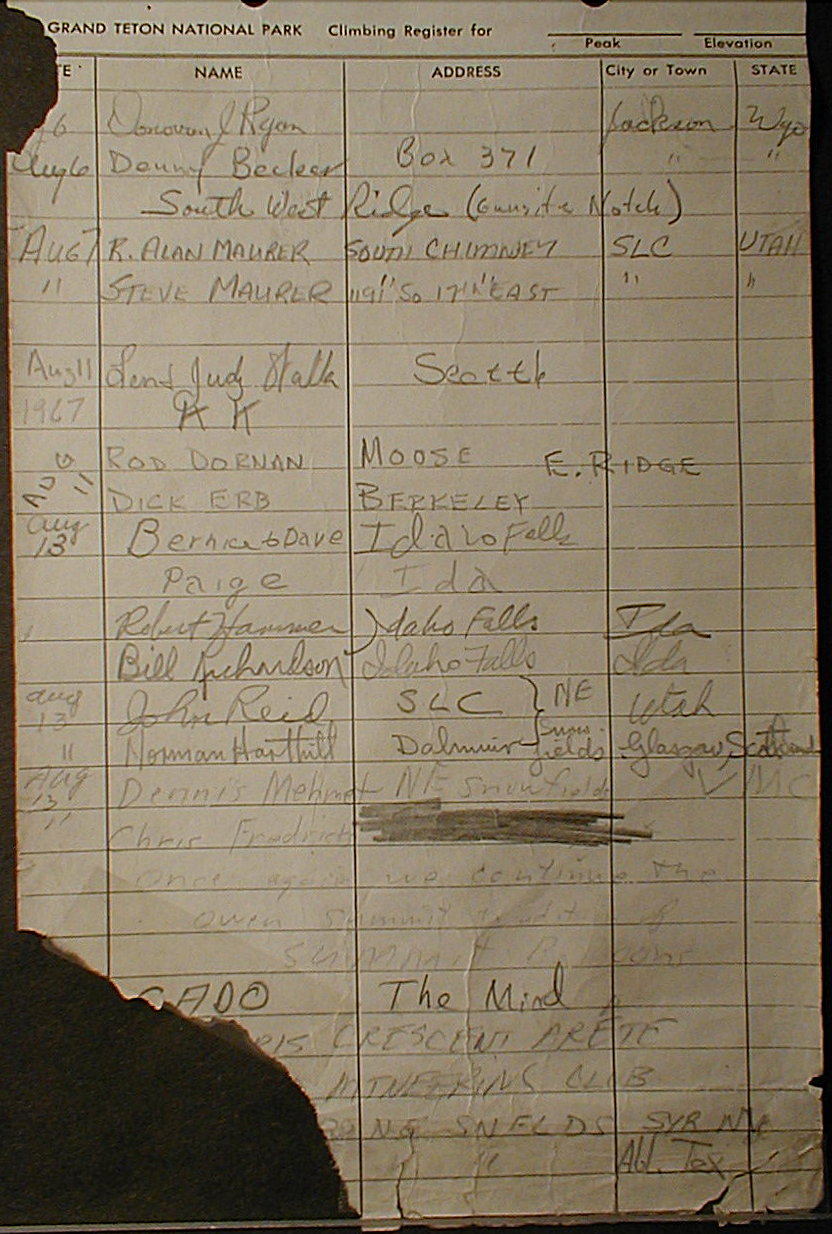 GRAND TETON NATIONAL PARK Climbing Register for
Peak Elevation
TE NAME ADDRESS City or Town STATE
6 Donovan J Ryan Jackson Wyo
Aug 6 Denny Becker Box 371 " "
South West Ridge (Gunsite Notch)
AUG 7 R. ALAN MAURER SOUTH CHIMNEY SLC UTAH
" STEVE MAURER 1191 So 17th EAST " "
Aug 11 Judy Seattle
1967
AUG 11 ROD DORNAN MOOSE E. RIDGE
DICK ERB BERKELEY
Aug 13 Bernice & Dave Idaho Falls
Paige Ida
Robert Hammer Idaho Falls Ida
Bill Richardson Idaho Falls Ida
Aug 13 John Reid SLC } NE Utah
" Norman Harthill Dalmuir Snow-fields Glasgow, Scotland
AUG 13 Dennis Mehmet NE Snowfields VMC
" Chris Fredrick
once again we continue the
Owen summit tradition of
SUMMIT
The Mind
CRESCENT ARETE
MTNEERING CLUB
NE SNFLDS SYR NY
" " Abl. Tex.